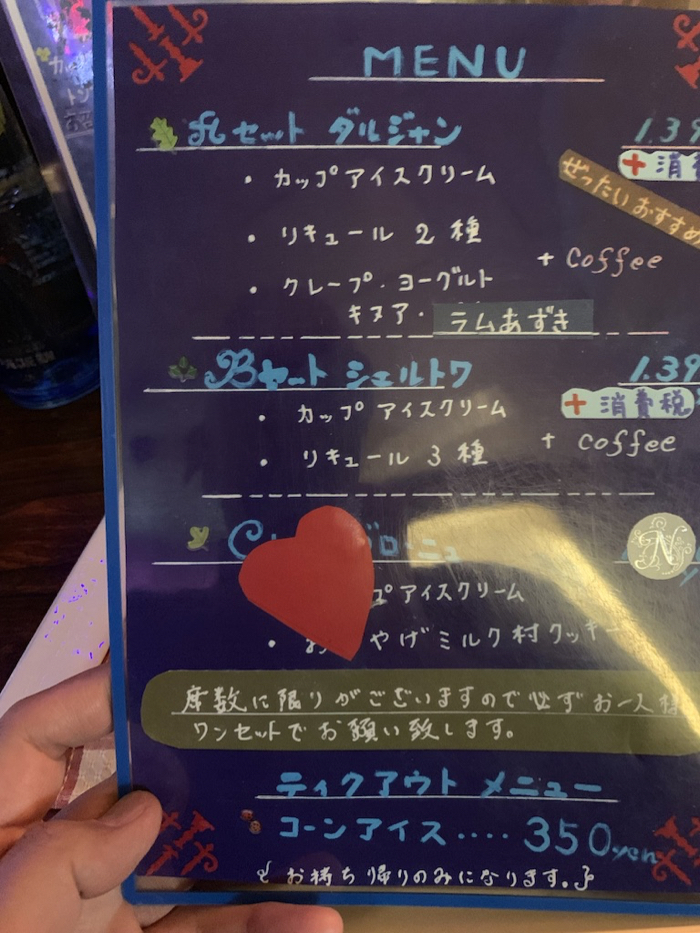 MENU
Aセット ダルジャン
1.39
・カップアイスクリーム
+消
ぜったいおすすめ
・リキュール 2種
+ Coffee
・クレープ・ヨーグルト
キヌア・ラムあずき
Bセット シェルトワ
1.39
・カップアイスクリーム
+消費税
・リキュール 3種
+ Coffee
C
ローニュ
N
プアイスクリーム
・お やげミルク村クッキー
席数に限りがございますので必ずお一人様
ワンセットでお願い致します。
テイクアウト メニュー
コーンアイス・・・・350yen
{お持ち帰りのみになります。}